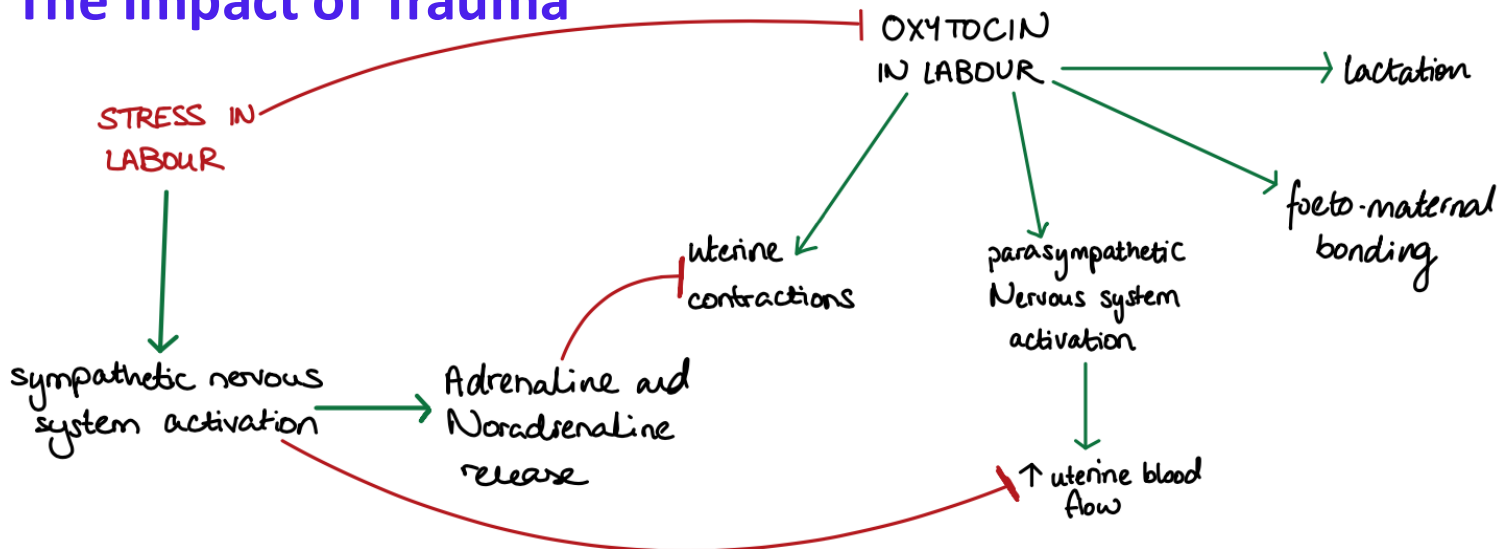 The Impact of Trauma
OXYTOCIN
IN LABOUR
lactation
STRESS IN
LABOUR
foeto-maternal
bonding
uterine
contractions
parasympathetic
Nervous system
activation
sympathetic nervous
system activation
Adrenaline and
Noradrenaline
release
↑ uterine blood
flow